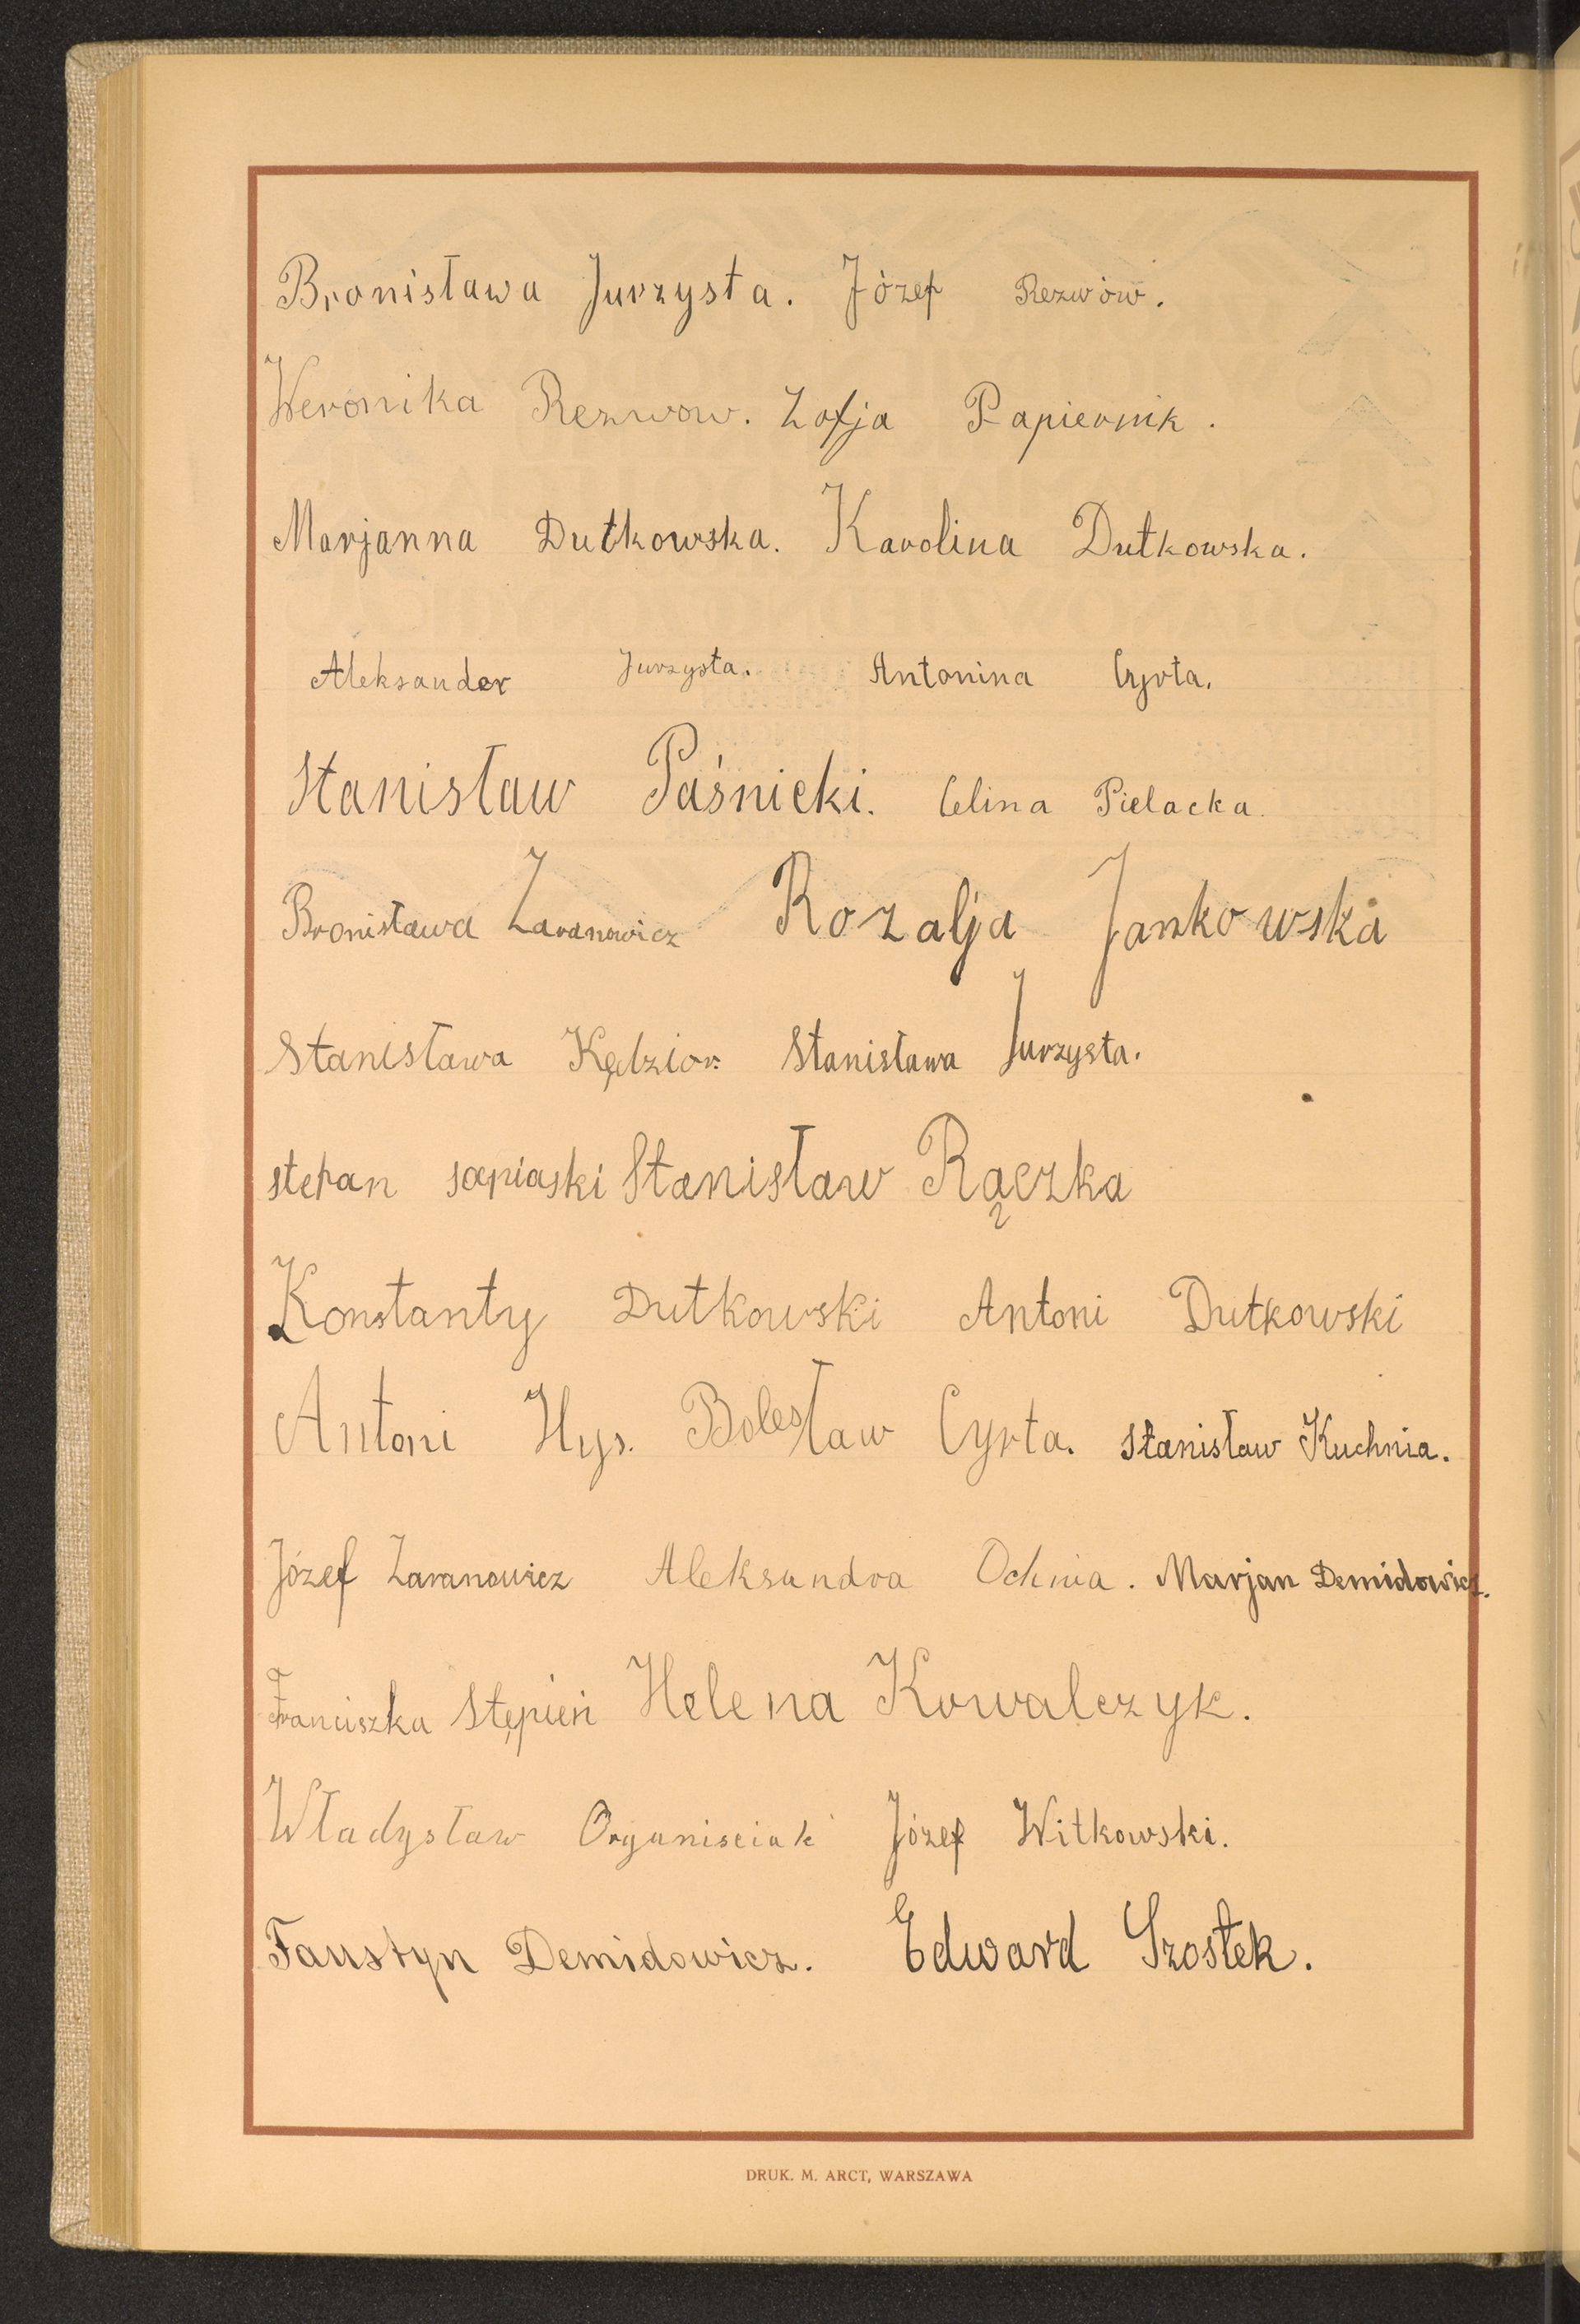 Bronisława Jurzysta. Józef Rezwów.
Weronika Rezwow. Zofja Papiernik.
Marjanna Dutkowska. Karolina Dutkowska.
Aleksander Jurzysta. Antonina Cyrta.
Stanisław Paśnicki. Celina Pielacka.
Bronisława Zaranowicz Rozalja Jankowska
Stanisława Kędzior. Stanisława Jurzysta.
stefan sapiaski Stanisław Rączka
Konstanty Dutkowski Antoni Dutkowski
Antoni Hys. Bolesław Cyrta. Stanisław Kuchnia.
Józef Zaranowicz Aleksandra Ochnia. Marjan Demidowicz.
Franciszka Stępień Helena Kowalczyk.
Władysław Organisciak Józef Witkowski.
Faustyn Demidowicz. Edward Szostek.
DRUK. M. ARCT, WARSZAWA